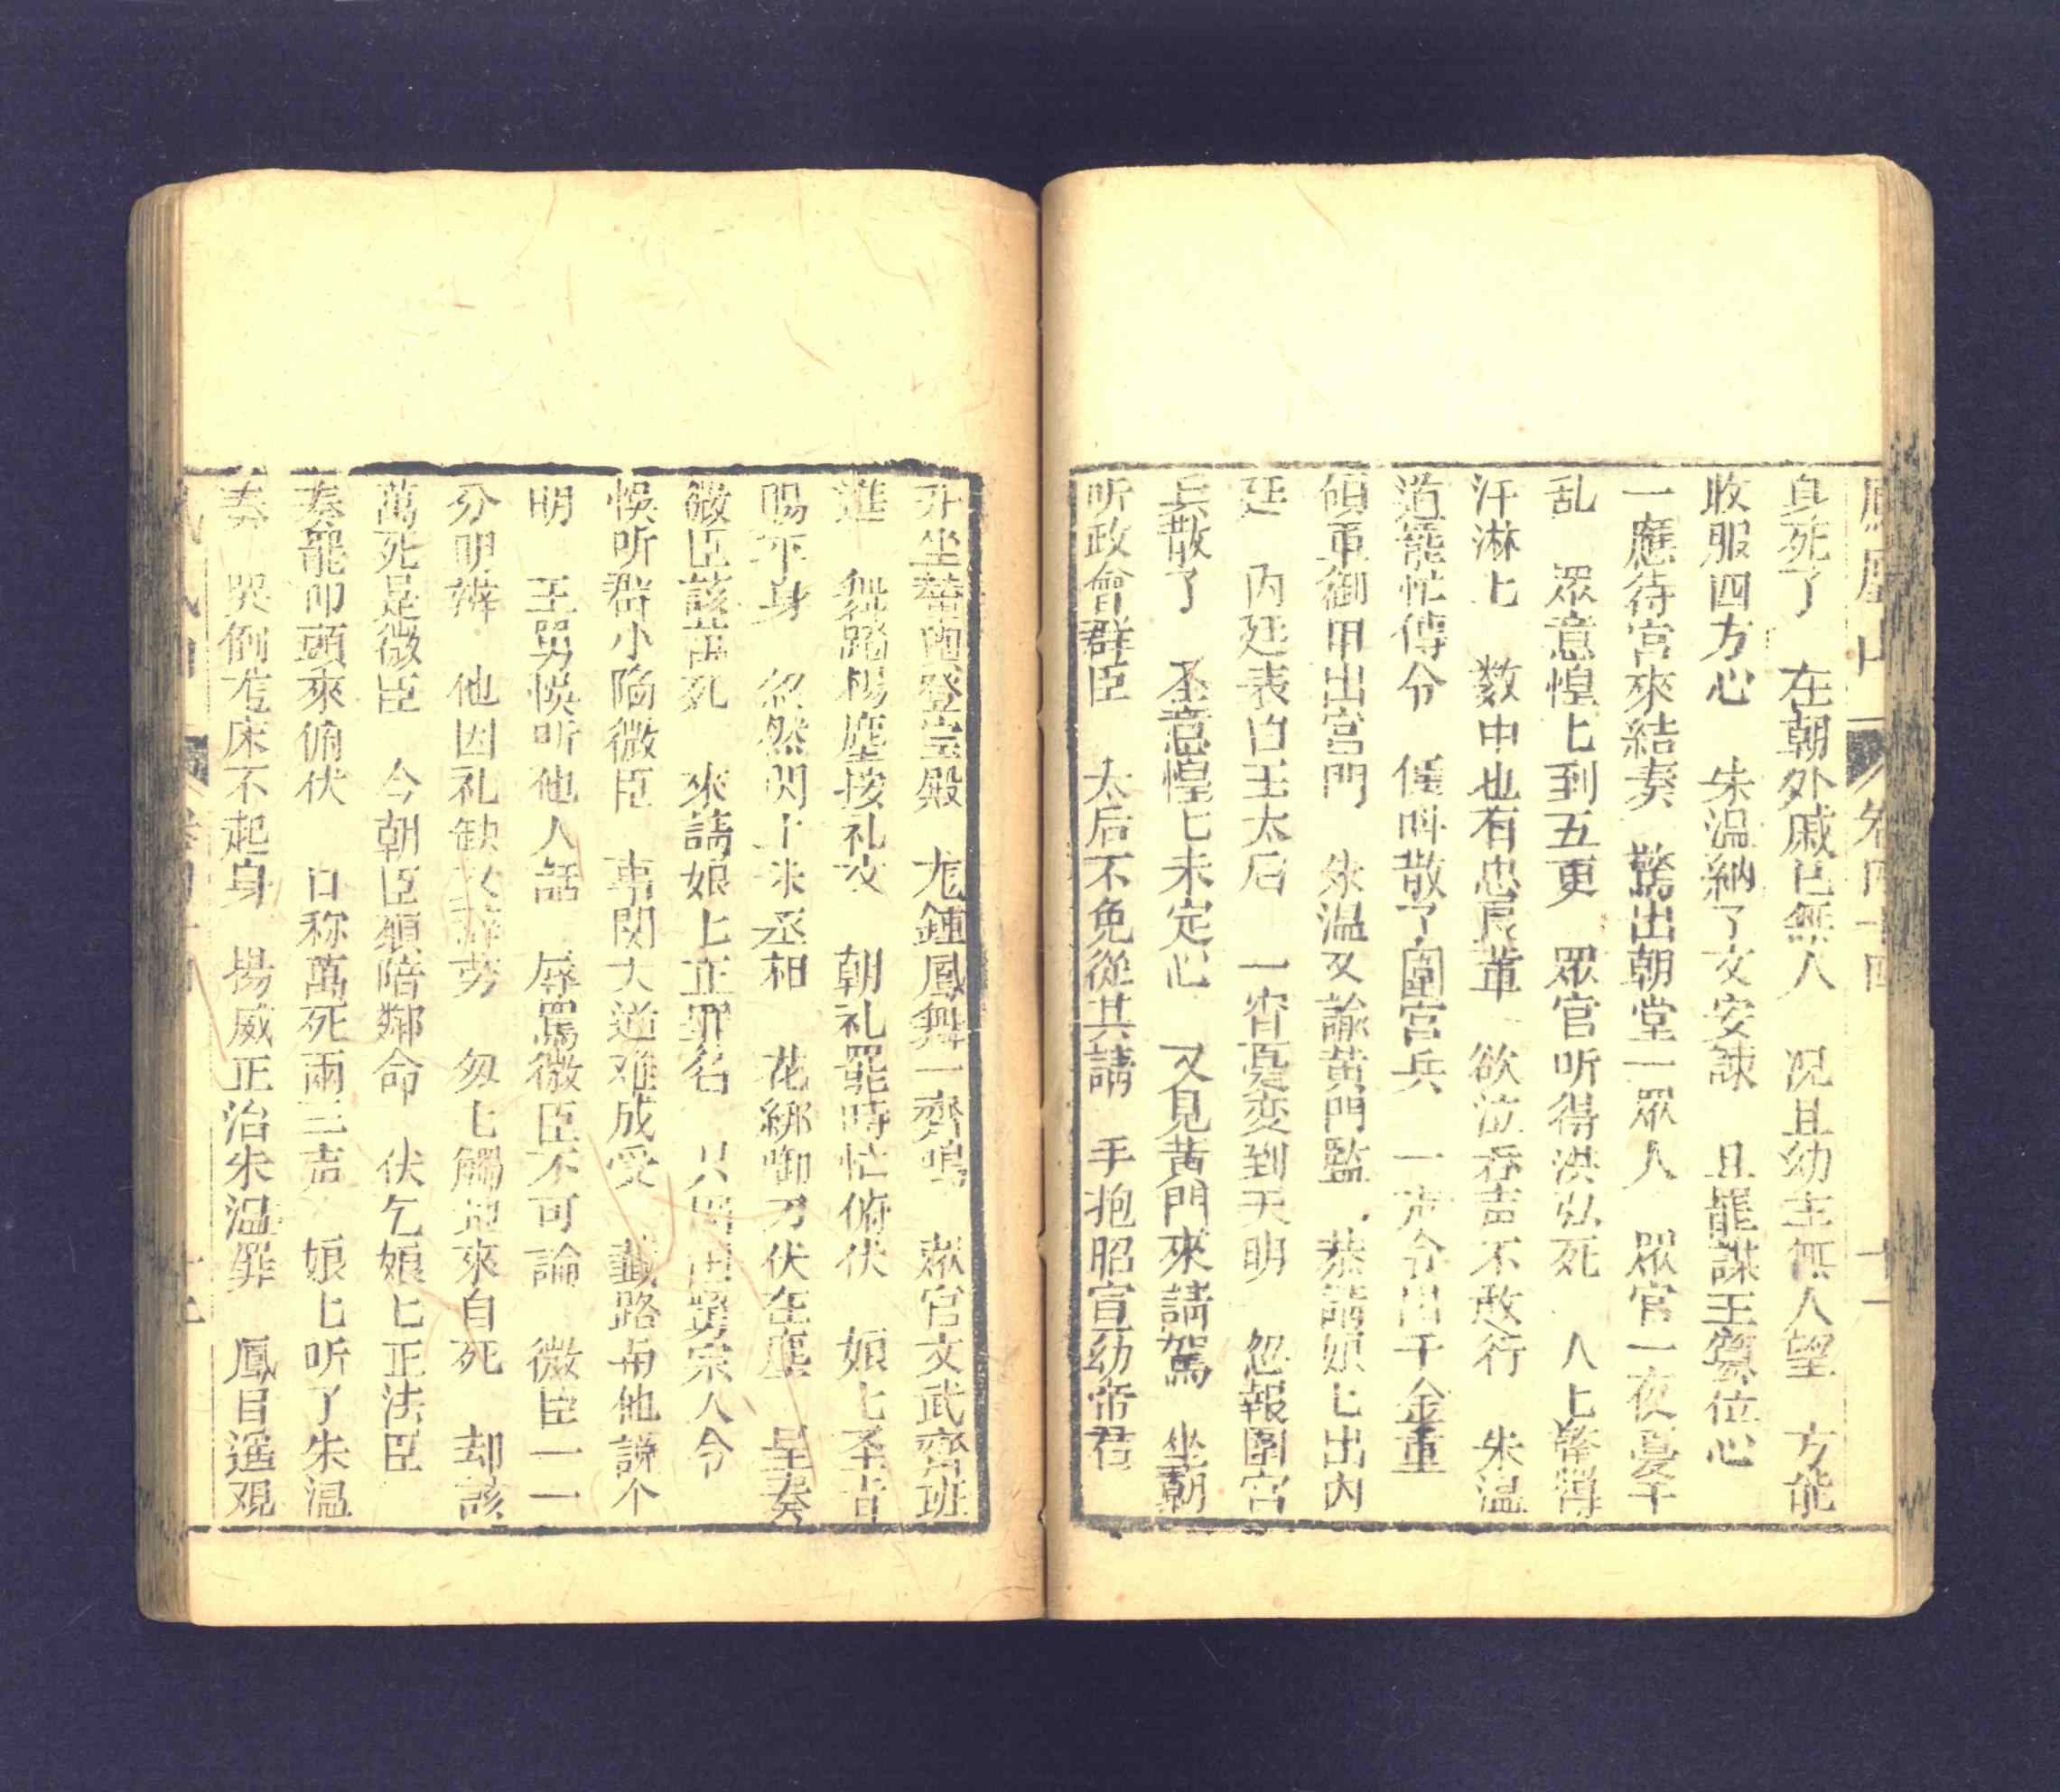 鳳凰山 卷四十四 十一
真死了 在朝外戚已無人 况且幼主無人望 方能
收服四方心 朱温納了文安諫 且罷謀王簒位心
一應待宮來結奏 驚出朝堂一眾人 眾官一夜憂千
乱 眾意惶匕到五更 眾官听得洪弘死 人匕
汗淋匕 数中也有忠良軰 欲泣吞声不敢行 朱温
道罷忙傳令 任呌散了圍宮兵 一声令出千金重
領軍御甲出宮門 朱温又諭黄門監 恭請娘匕出内
廷 内廷表白王太后 一宵憂变到天明 忽報圍宮
兵散了 圣意惶匕未定心 又見黄門來請駕 坐朝
听政會群臣 太后不免從其請 手抱昭宣幼帝君
升坐鸞輿登宝殿 龙鍾鳳舞一齊鳴 眾官文武齊班
進 舞蹈楊塵按礼文 朝礼罷時忙俯伏 娘匕圣旨
賜平身 忽然閃上朱丞相 花綁啣刀伏在塵 呈奏
微臣該萬死 來請娘匕正罪名 只因田舅宗人令
悞听群小陥微臣 事関大逆难成受 截路与他説个
明 王舅悞听他人話 辱罵微臣不可論 微臣一一
分明辨 他因礼缺又辞劳 匆匕觸地來自死 却該
萬死是微臣 今朝臣願賠鄰命 伏乞娘匕正法臣
奏罷叩頭來俯伏 口称萬死兩三声 娘匕听了朱温
奏 哭倒龙床不起身 揚威正治朱温罪 鳳目遥观